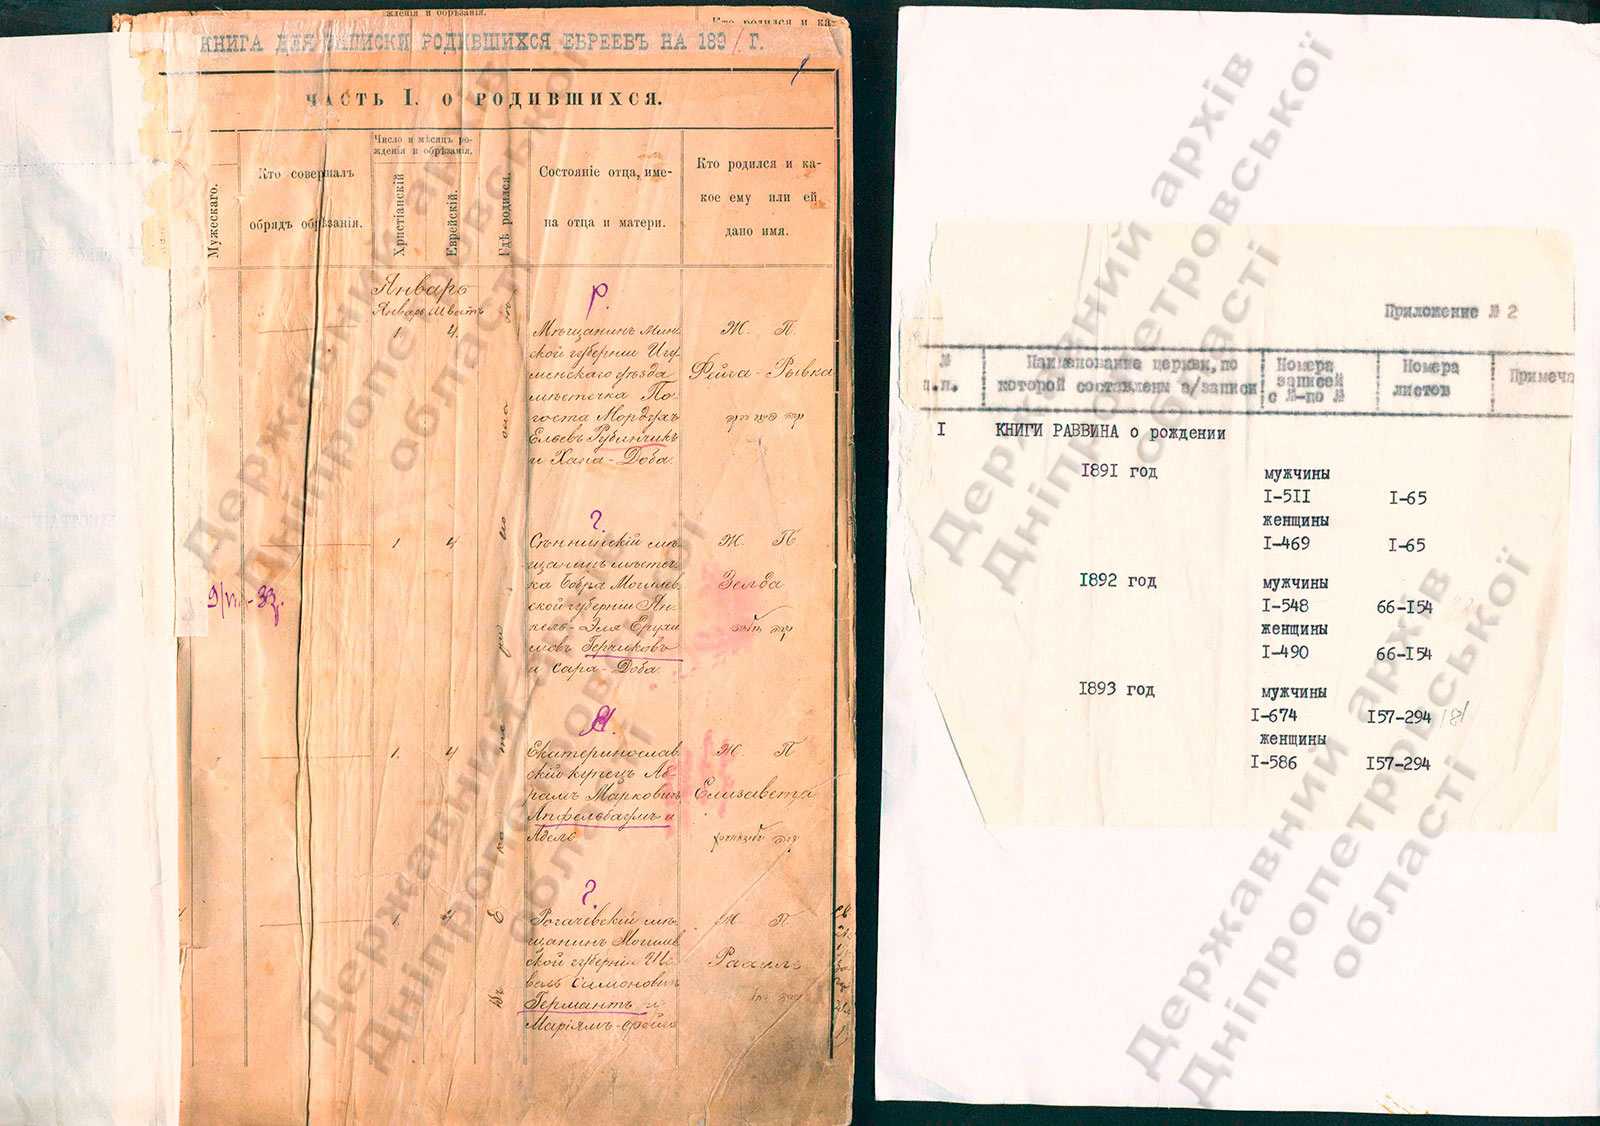 ждения и обрѣзанія.
Кто родился и ка-
КНИГА ДЛЯ ЗАПИСКИ РОДИВШИХСЯ ЕВРЕЕВЪ НА 189 Г.
1
ЧАСТЬ I. О РОДИВШИХСЯ.
Мужескаго.
Кто совершалъ
обрядъ обрѣзанія.
Число и мѣсяцъ ро-
жденія и обрѣзанія.
Христіанскій
Еврейскій.
Гдѣ родился.
Состояніе отца, име-
на отца и матери.
Кто родился и ка-
кое ему или ей
дано имя.
Январь
Январь Шватъ
1. 4.
Р.
Мѣщанинъ Мин-
ской губерніи Игу-
менскаго уѣзда
мѣстечка По-
госта Мордухъ
Ельевъ Рубинчикъ
и Хана-Доба.
Ж. П.
Фейга-Рывка
1. 4
Г.
Сѣннинскій мѣ-
щанинъ мѣстеч-
ка Бобра Могилев-
ской губерніи Ян-
кель-Эля Ерухи-
мовъ Герчиковъ
и Сара-Доба.
Ж. П.
Зельда
9/VI-33.
1. 4
А.
Екатеринослав-
скій купецъ Аб-
рамъ Марковичъ
Апфельбаумъ и
Адель
Ж. П
Елизавета
1.
Г.
Рогачевскій мѣ-
щанинъ Могилев-
ской губерніи
Симоновичъ
Германтъ и
Маріямъ-Фрейга
Ж. П
Рахиль
Приложение № 2
№
п.п.
Наименование церкви, по
которой составлены а/записи
Номера
записей
с №-по №
Номера
листов
Примеча
I КНИГИ РАВВИНА о рождении
I89I год мужчины
I-5II I-65
женщины
I-469 I-65
I892 год мужчины
I-548 66-I54
женщины
I-490 66-I54
I893 год мужчины
I-674 I57-294 181
женщины
I-586 I57-294
Державний архів
Дніпропетровської
області
Державний архів
Дніпропетровської
області
Державний архів
Дніпропетровської
області
Державний архів
Дніпропетровської
області